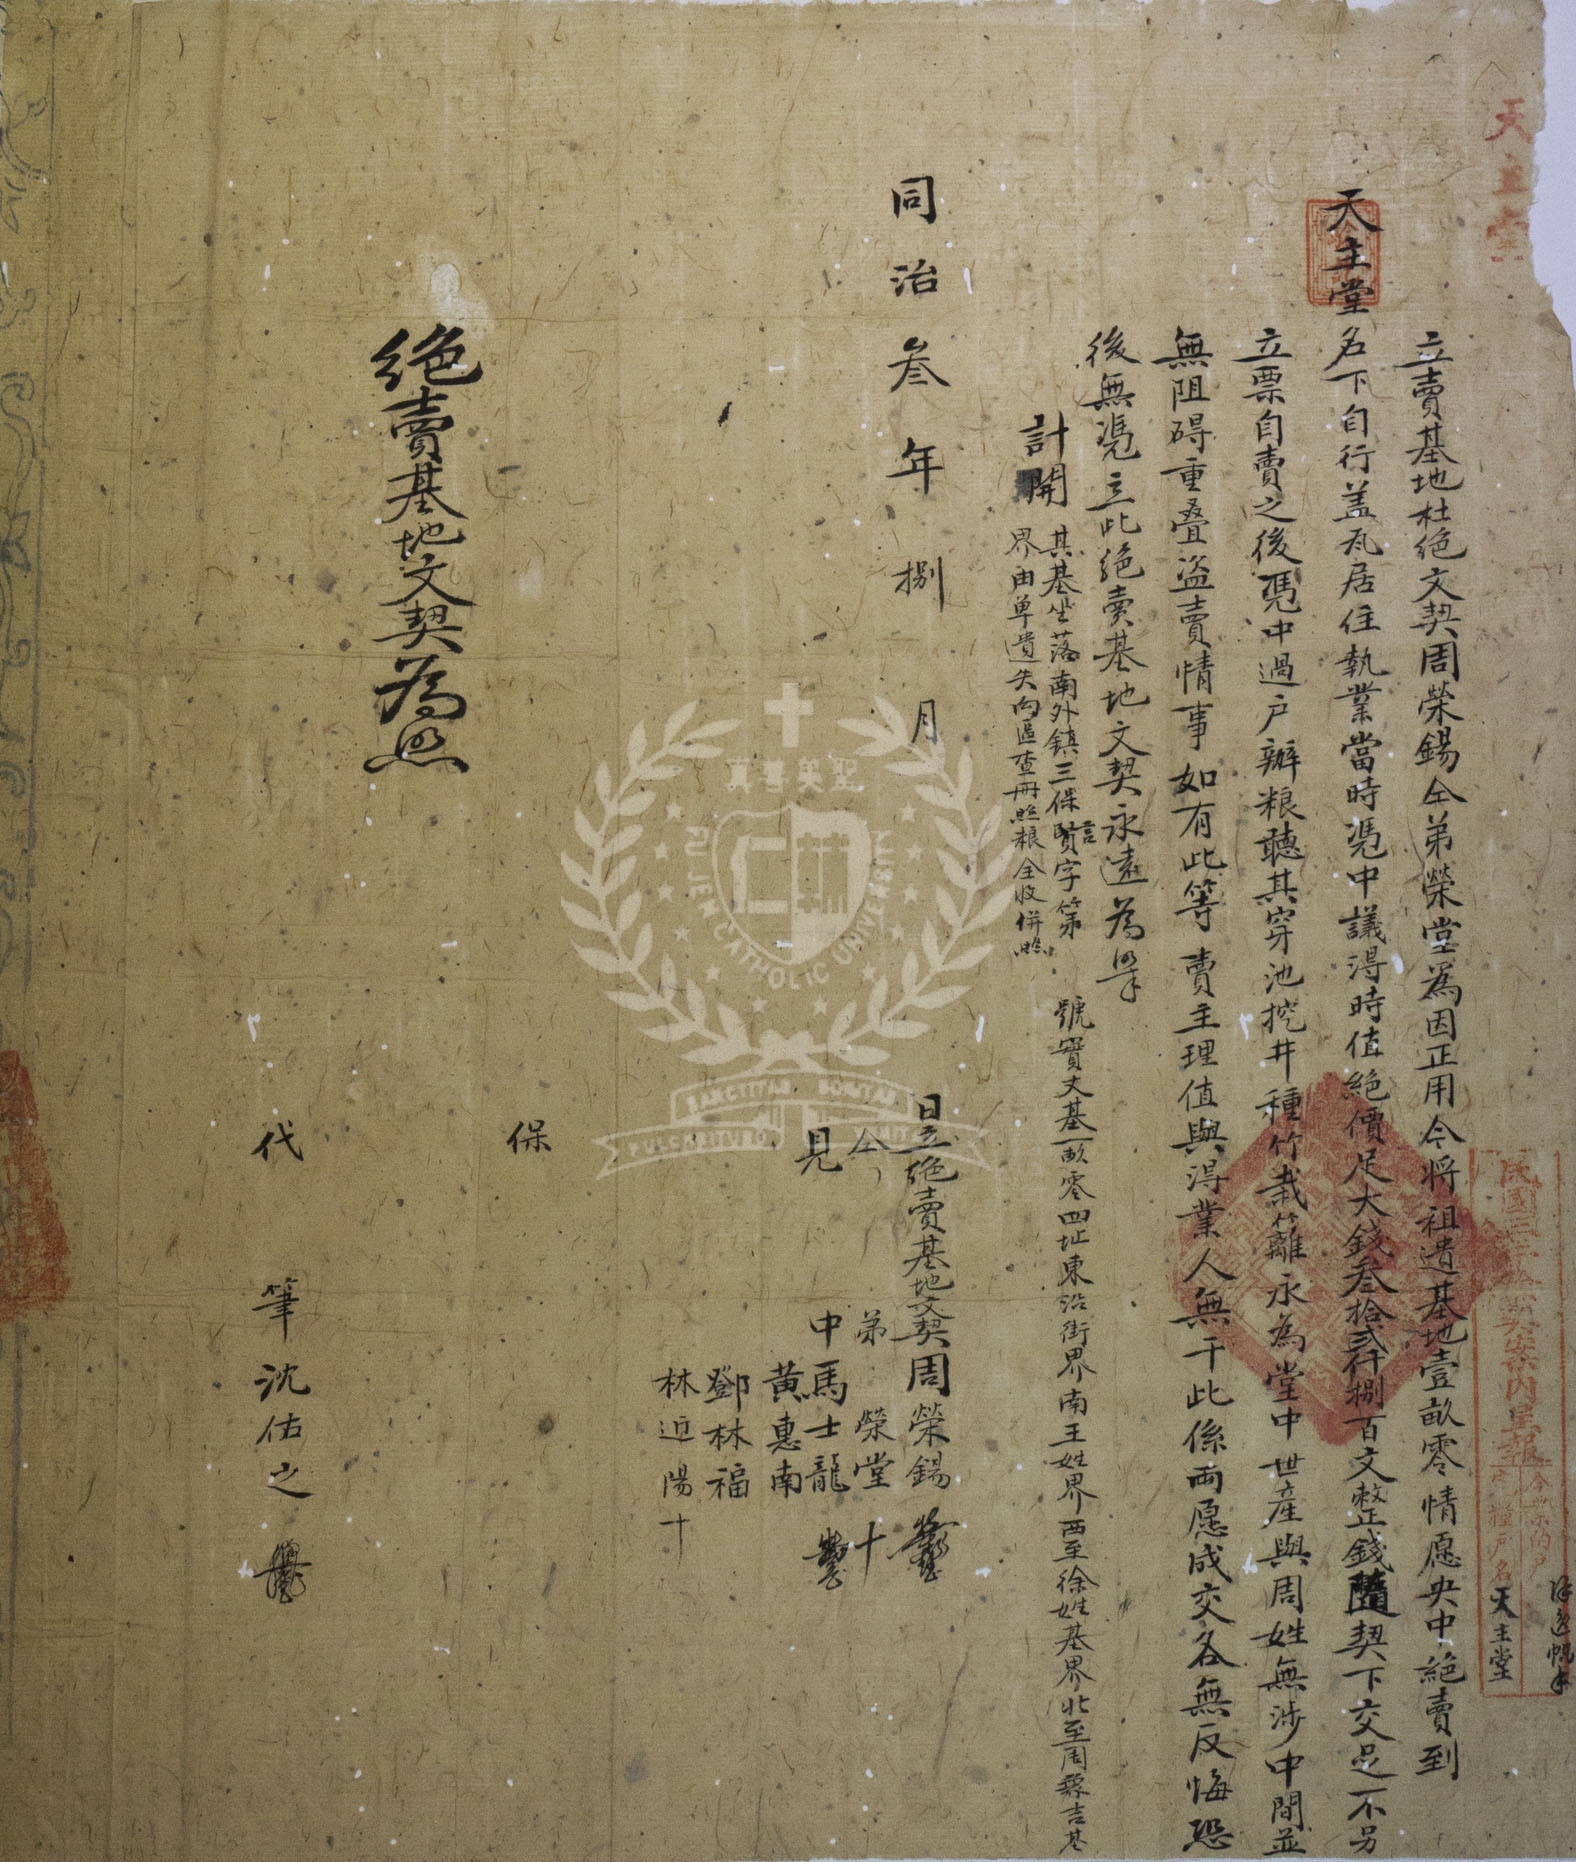 天主堂
立賣基地杜絕文契周榮錫仝弟榮堂為因正用今將祖遺基地壹畝零情愿央中絕賣到
天主堂名下自行蓋瓦居住執業當時憑中議淂時值絕價足大錢叁拾弍仟捌百文整錢隨契下交足不另
立票自賣之後憑中過户辦粮聽其穿池挖井種竹栽籬永為堂中世産與周姓無涉中間並
無阻碍重叠盜賣情事如有此等賣主理值與淂業人無干此係両愿成交各無反悔恐
後無憑立此絕賣基地文契永遠為㨿
計開
其基坐落南外鎮三保賢字第 號實丈基一畝零四址東沿街界南王姓界西至徐姓基界北至周 吉基
界由单遺失向區查冊照粮全收併照
同治叁年捌月 日立絕賣基地文契周榮錫
仝 弟榮堂十
見 中馬士龍
黄惠南
鄧林福
林近陽十
保
絕賣基地文契為照
代 筆沈佑之
民國三 契案内呈報
今業的户
糧户名
天主堂
聖美善真
FU JEN CATHOLIC UNIVERSITY